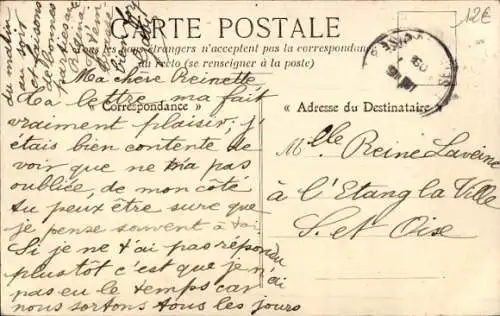 CARTE POSTALE
Tous les pays étrangers n'acceptent pas la correspondance
au recto (se renseigner à la poste)
« Correspondance »
« Adresse du Destinataire »
12€
Ma chère Reinette
Ta lettre m'a fait
vraiment plaisir; j'
étais bien contente de
voir que ne m'a pas
oubliée, de mon côté
tu peux être sure que
je pense souvent à toi
Si je ne t'ai pas répondu
plustôt c'est que je n'ai
pas eu le temps car
nous sortons tous les jours
du matin
au soir
et faisons
de bonnes
parties
Mlle Reine Laveine
à l'Etang la Ville
S. et Oise